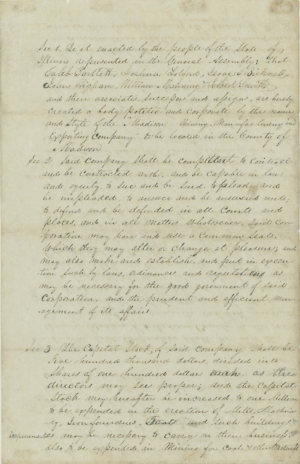 Sec 1. Be it enacted by the people of the State of
Illinois represented in the General Assembly; That
and their associates successors and assigns, are hereby
created a body politic and corporate by the name
and style of the "Madison Mining Manufacturing and
Company" to be located in the County of
Madison.
Sec 2. Said Company shall be competent to contract
and be contracted with. and be capable in law
and equity to sue and be sued to plead, and
be impleaded, to answer and be answered unto,
to defend and be defended in all Courts and
places, and in all matters whatsoever. Said cor-
poration may have and use a Common Seal,
which they may alter or change at pleasure; and
may also make and establish, and put in execu-
tion such by laws, ordinances and regulations as
may be necessary for the good government of said
Corporation and the prudent and efficient man-
agement of its affairs
Sec 3 The Capital Stock, of said company shall be
five hundred thousand dollars, divided into
Shares of one hundred dollars each as the
directors may see proper; and the Capital
Stock may hereafter be increased to one Million
to be expended in the erection of Mills, Machin-
ery, and such buildings &
may be necessary to carry on their business
also to be expended in Mining for Coal &